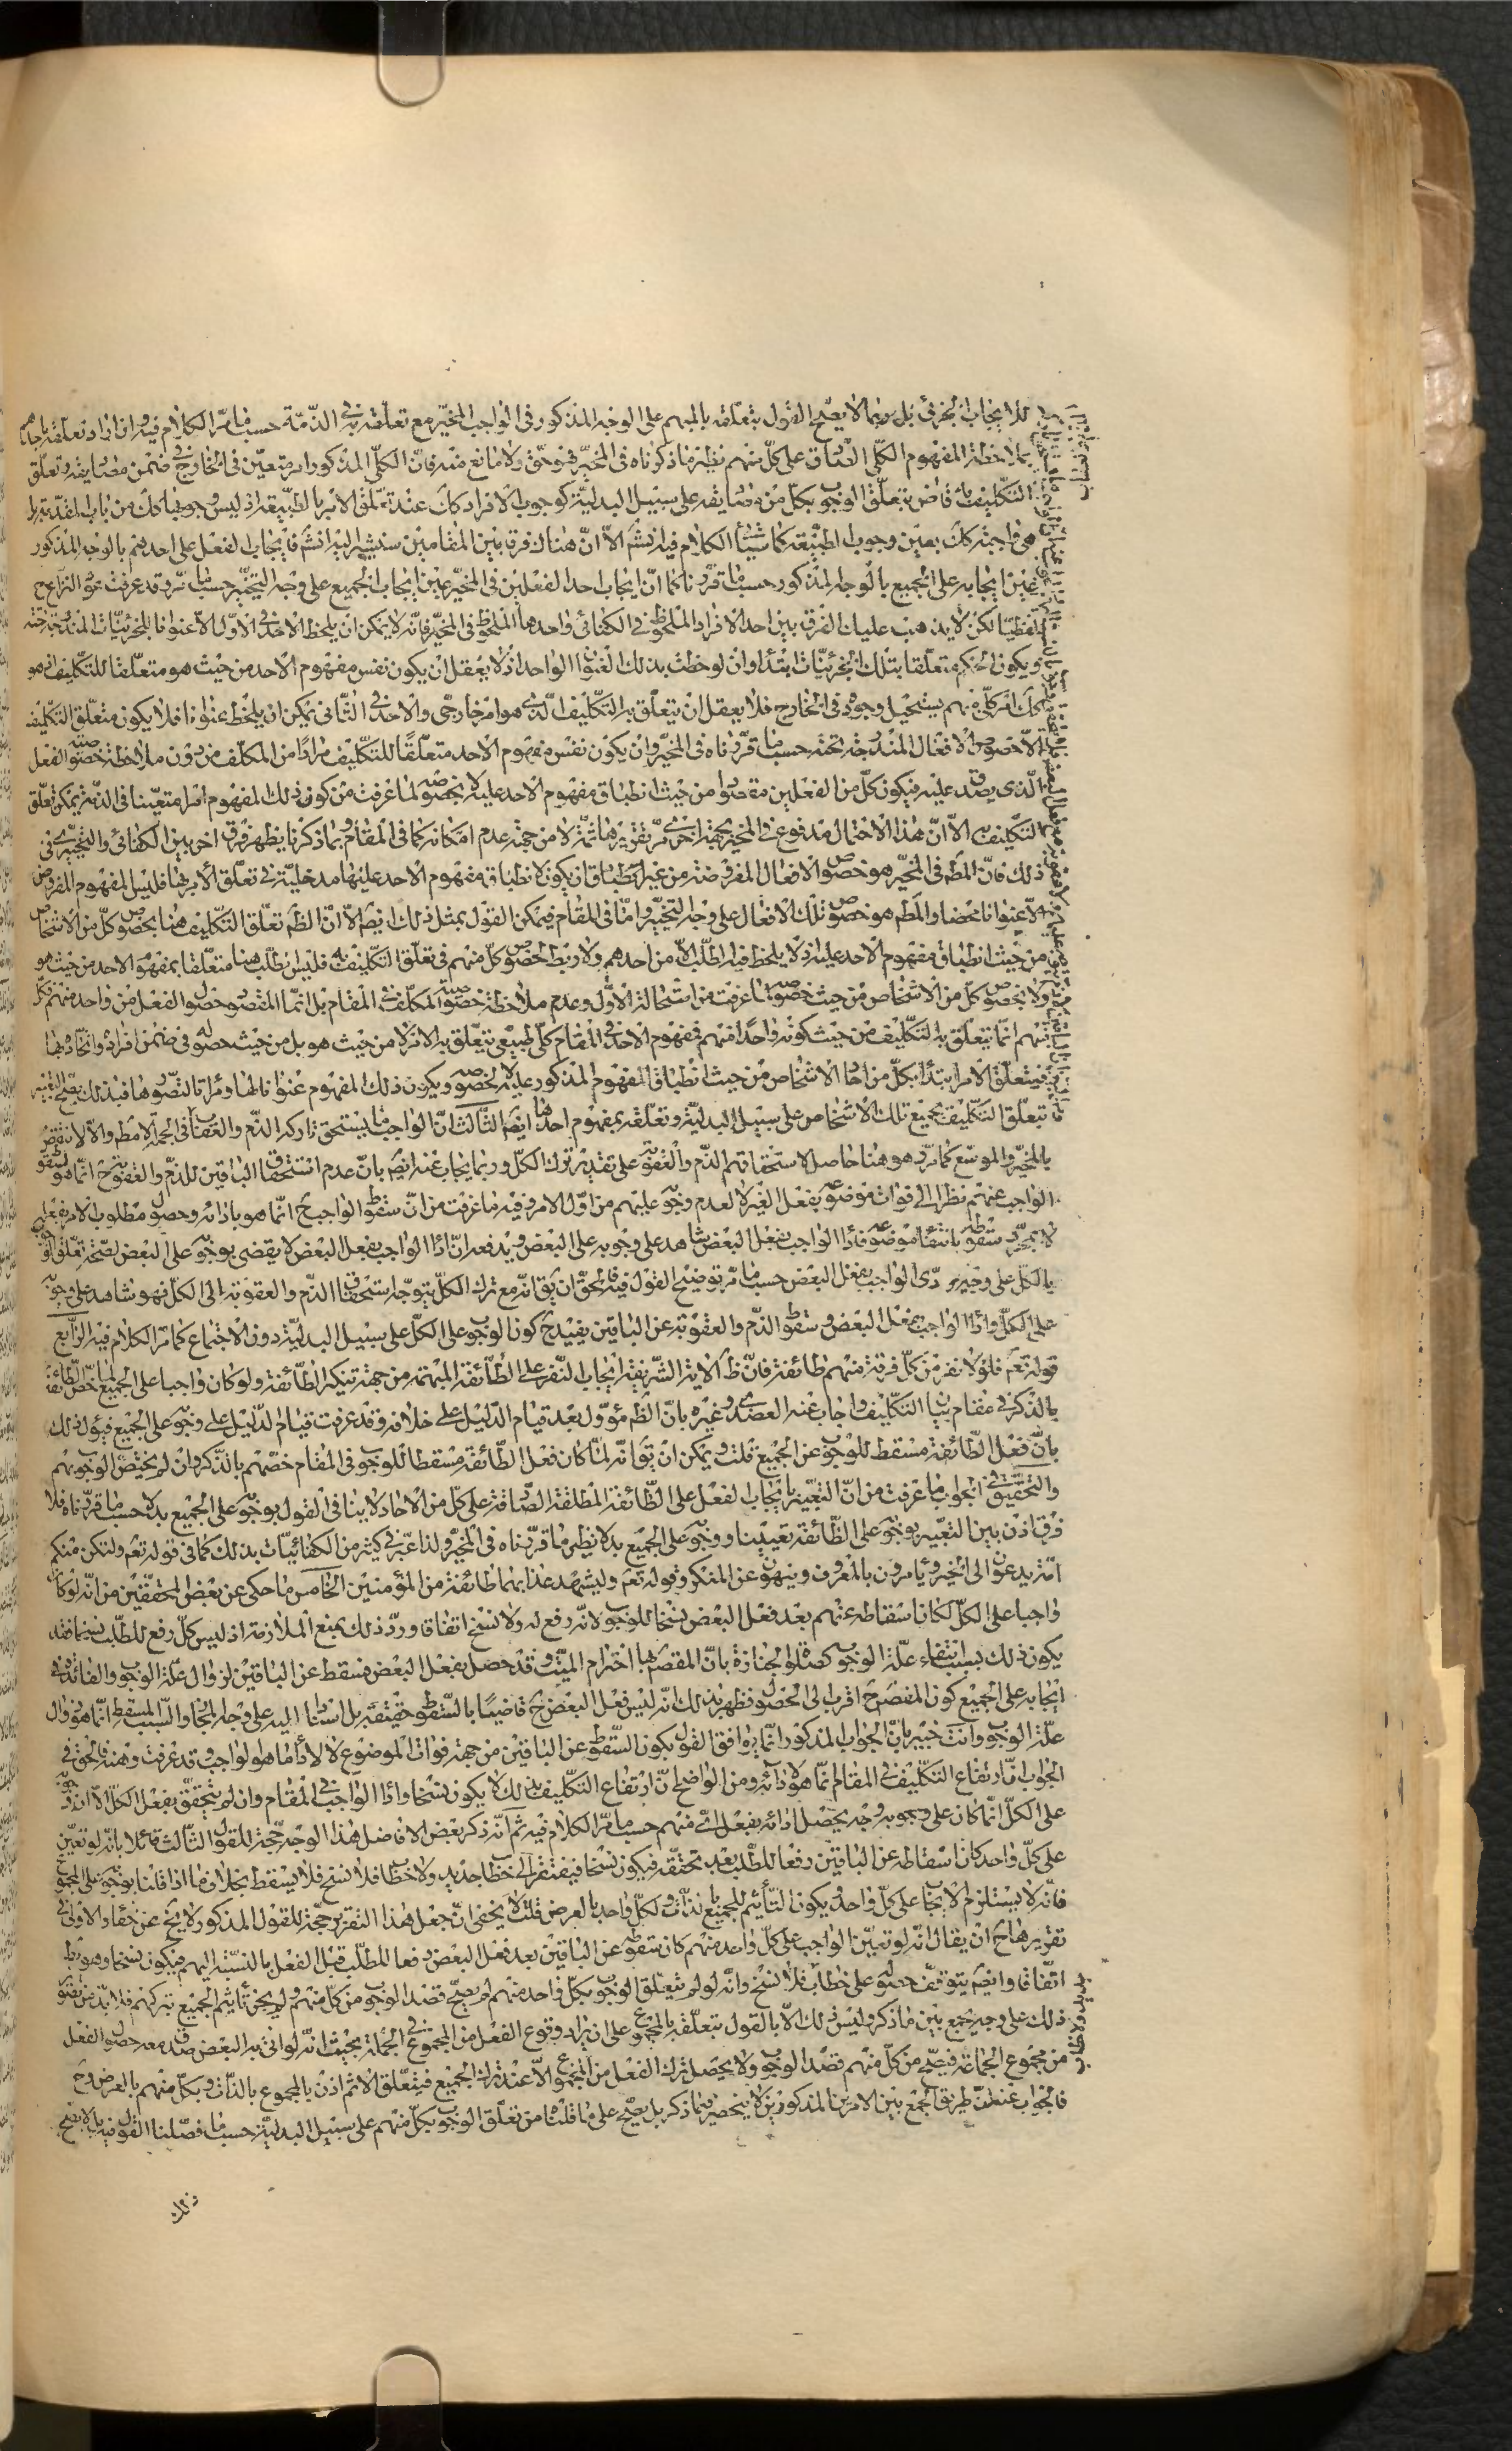 للايجاب الجزئى بل ربما لا يصح القول بتعلقه بالمبهم على الوجه المذكور فى الواجب المخير مع تعلقه به فى الذمة حسب ما مر الكلام فيه وان اراد تعلقه باحدهم
بملاحظة المفهوم الكلى الصادق على كل منهم نظير ما ذكرناه فى المخير فهو حق ولا مانع منه فان الكلى المذكور امر متعين فى الخارج فى ضمن مصاديقه وتعلق
التكليف به قاض بتعلق الوجوب بكل من مصاديقه على سبيل البدلية كوجوب الافراد كك عند تعلق الامر بالطبيعة اذ ليس وجوبها كك من باب المقدمة بل
هى واجبة كك بعين وجوب الطبيعة كما سيأتى الكلام فيه انش الا ان هناك فرقا بين المقامين سنشير اليه انش فايجاب الفعل على احدهم بالوجه المذكور
عين ايجابه على الجميع بالوجه المذكور حسب ما قررناه كما ان ايجاب احد الفعلين فى المخير عين ايجاب الجميع على وجه التخيير حسب ما مر وقد عرفت عود النزاع ح
لفظيا لكن لا يذهب عليك الفرق بين احد الافراد الملحوظ فى الكفائى واحدها الملحوظ فى المخير فانه لا يمكن ان يلحظ الاحد فى الاول الا عنوانا للجزئيات المندرجة تحته
ويكون الحكم متعلقا بتلك الجزئيات ابتداء وان لوحظت بذلك العنوان الواحد اذ لا يعقل ان يكون نفس مفهوم الاحد من حيث هو متعلقا للتكليف اذ هو
كك امر كلى مبهم يستحيل وجوده فى الخارج فلا يعقل ان يتعلق به التكليف الذى هو امر خارجى والاحد فى الثانى يمكن ان يلحظ عنوانا فلا يكون متعلق التكليف
الا خصوص الافعال المندرجة تحته حسب ما قررناه فى المخير وان يكون نفس مفهوم الاحد متعلقا للتكليف مرادا من المكلف من دون ملاحظة خصوصية الفعل
الذى يصدق عليه فيكون كل من الفعلين مقصودا من حيث انطباق مفهوم الاحد عليه لا بخصوصه لما عرفت من كون ذلك المفهوم امرا متعينا فى الذمة يمكن تعلق
التكليف به الا ان هذا الاحتمال مدفوع فى المخير بجهة اخرى مر تقريرها ثمة لا من جهة عدم امكانه كما فى المقام وبما ذكرنا يظهر فرق اخر بين الكفائى والتخييرى فى
ذلك فان المط فى المخير هو خصوص الافعال المفروضة من غير ان يكون لانطباق مفهوم الاحد عليها مدخلية فى تعلق الامر بها فليس المفهوم المفروض
الا عنوانا محضا والمط هو خصوص تلك الافعال على وجه التخيير واما فى المقام فيمكن القول بمثل ذلك ايضا الا ان الظ تعلق التكليف هنا بخصوص كل من الاشخاص
من حيث انطباق مفهوم الاحد عليه اذ لا يلحظ فيه الطلب الا من احدهم ولا ربط لخصوص كل منهم فى تعلق التكليف به فليس الطلب هنا متعلقا بمفهوم الاحد من حيث هو
ولا بخصوص كل من الاشخاص من حيث خصوصه لما عرفت من استحالة الاول وعدم ملاحظة خصوصية المكلف فى المقام بل انما المقصود حصول الفعل من واحد منهم فكل
منهم انما يتعلق به التكليف من حيث كونه واحدا منهم فمفهوم الاحد فى المقام كلى طبيعى يتعلق به الامر لا من حيث هو بل من حيث حصوله فى ضمن افراده واتحاده بها
فيتعلق الامر ابتداء بكل من احاد الاشخاص من حيث انطباق المفهوم المذكور عليه لا بخصوصه ويكون ذلك المفهوم عنوانا لها ومرآتا لتصورها فبذلك يصح التعبير
تعلق التكليف بجميع تلك الاشخاص على سبيل البدلية وتعلقه بمفهوم احدها ايضا الثالث ان الواجب ما يستحق تاركه الذم والعقاب فى الجملة لا مط والا لانتقض
بالمخير والموسع كما مر وهو هنا حاصل لاستحقاقهم الذم والعقوبة على تقدير ترك الكل وربما يجاب عنه ايضا بان عدم استحقاق الباقين للذم والعقوبة ح انما هو لسقوط
الواجب عنهم نظرا الى فوات موضوعه بفعل الغير لا لعدم وجوبه عليهم من اول الامر وفيه ما عرفت من ان سقوط الواجب ح انما هو بادائه وحصول مطلوب الامر بفعل
لا بمجرد سقوطه بانتفاء موضوعه فاداء الواجب بفعل البعض شاهد على وجوبه على البعض ويدفعه ان اداء الواجب بفعل البعض لا يقضى بوجوبه على البعض لصحة تعلق الوجوب
بالكل على وجه يؤدى الواجب بفعل البعض حسب ما مر توضيح القول فيه فالحق ان يق انه مع ترك الكل يتوجه استحقاق الذم والعقوبة الى الكل فهو شاهد على وجوبه
على الكل واداء الواجب بفعل البعض وسقوط الذم والعقوبة عن الباقين يفيد ح كون الوجوب على الكل على سبيل البدلية دون الاجتماع كما مر الكلام فيه الرابع
قوله تعم فلولا نفر من كل فرقة منهم طائفة فان ظ الاية الشريفة ايجاب النفر على الطائفة المبهمة من جهة تنكير الطائفة ولو كان واجبا على الجميع لما خص الطائفة
بالذكر فى مقام بيان التكليف واجاب عنه العضدى وغيره بان الظ مؤول بعد قيام الدليل على خلافه وقد عرفت قيام الدليل على وجوبه على الجميع فيؤول ذلك
بان فعل الطائفة مسقط للوجوب عن الجميع قلت ويمكن ان يق انه لما كان فعل الطائفة مسقطا للوجوب فى المقام خصهم بالذكر وان لم يختص الوجوب بهم
والتحقيق فى الجواب ما عرفت من ان التعبير بايجاب الفعل على الطائفة المطلقة الصادقة على كل من الاحاد لا ينافى القول بوجوبه على الجميع بدلا حسب ما قررناه فلا
فرق اذن بين التعبير بوجوبه على الطائفة تعيينا ووجوبه على الجميع بدلا نظير ما قررناه فى المخير ولذا عبر فى كثير من الكفائيات بذلك كما فى قوله تعم ولتكن منكم
امة يدعون الى الخير ويامرون بالمعروف وينهون عن المنكر وقوله تعم وليشهد عذابهما طائفة من المؤمنين الخامس ما حكى عن بعض المحققين من انه لو كان
واجبا على الكل لكان اسقاطه عنهم بعد فعل البعض نسخا للوجوب لانه رفع له ولا نسخ اتفاقا ورد ذلك بمنع الملازمة اذ ليس كل رفع للطلب نسخا فقد
يكون ذلك بسبب انتفاء علة الوجوب كصلوة الجنازة بان المقصود بها احترام الميت وقد حصل بفعل البعض فسقط عن الباقين لزوال علة الوجوب والفائدة فى
ايجابه على الجميع كون المقصود ح اقرب الى الحصول فظهر بذلك انه ليس فعل البعض ح قاضيا بالسقوط حقيقة بل اسندنا اليه على وجه المجاز والسبب المسقط انما هو زوال
علة الوجوب وانت خبير بان الجواب المذكور انما يوافق القول بكون السقوط عن الباقين من جهة فوات الموضوع لا لاداء ما هو الواجب وقد عرفت وهنه فالحق فى
الجواب ان ارتفاع التكليف فى المقام انما هو لادائه ومن الواضح ان ارتفاع التكليف بذلك لا يكون نسخا واداء الواجب فى المقام وان لم يتحقق بفعل الكل الا ان وجوبه
على الكل انما كان على وجه يحصل ادائه بفعل اى منهم حسب ما مر الكلام فيه ثم انه ذكر بعض الافاضل هذا الوجه حجة للقول الثالث قائلا بانه لو تعين
على كل واحد كان اسقاطه عن الباقين رفعا للطلب بعد تحققه فيكون نسخا فيفتقر الى خطاب جديد ولا خطاب فلا نسخ فلا يسقط بخلاف ما اذا قلنا بوجوبه على المجموع
فانه لا يستلزم الايجاب على كل واحد ويكون التأثيم للجميع بالذات ولكل واحد بالعرض قلت لا يخفى ان جعل هذا التقرير حجة للقول المذكور لا يخ عن خفاء والاولى فى
تقريرها ح ان يقال انه لو تعين الواجب على كل واحد منهم كان سقوطه عن الباقين بعد فعل البعض رفعا للطلب قبل الفعل بالنسبة اليهم فيكون نسخا وهو بط
اتفاقا وايضا يتوقف حصوله على خطاب فلا نسخ وانه لو لم يتعلق الوجوب بكل واحد منهم لم يصح قصد الوجوب من كل منهم ولم يجز تأثيم الجميع بتركهم فلا بد من ثبوت
ذلك على وجه يجمع بين ما ذكر وليس ذلك الا بالقول بتعلقه بالمجموع على ان يراد وقوع الفعل من المجموع فى الجملة بحيث انه لو اتى به البعض صدق معه حصول الفعل
من مجموع الجماعة فيصح من كل منهم قصد الوجوب ولا يحصل ترك الفعل من المجموع الا عند ترك الجميع فيتعلق الاثم اذن بالمجموع بالذات وبكل منهم بالعرض وح
فالجواب عنه ان طريق الجمع بين الامرين المذكورين لا ينحصر فيما ذكر بل يصح على ما قلناه من تعلق الوجوب بكل منهم على سبيل البدلية حسب ما فصلنا القول فيه بل لا يصح